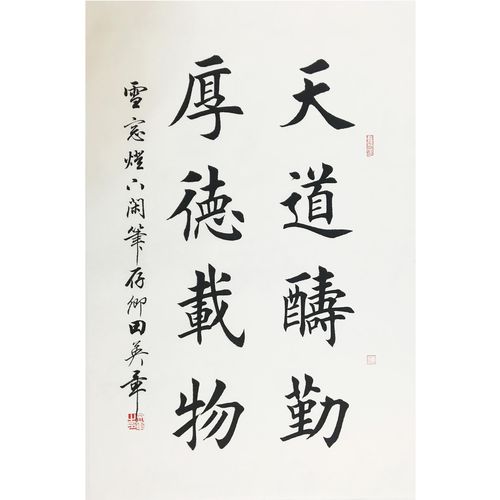 天道醻勤
厚德載物
雪窓燈下閑筆存卿田英章